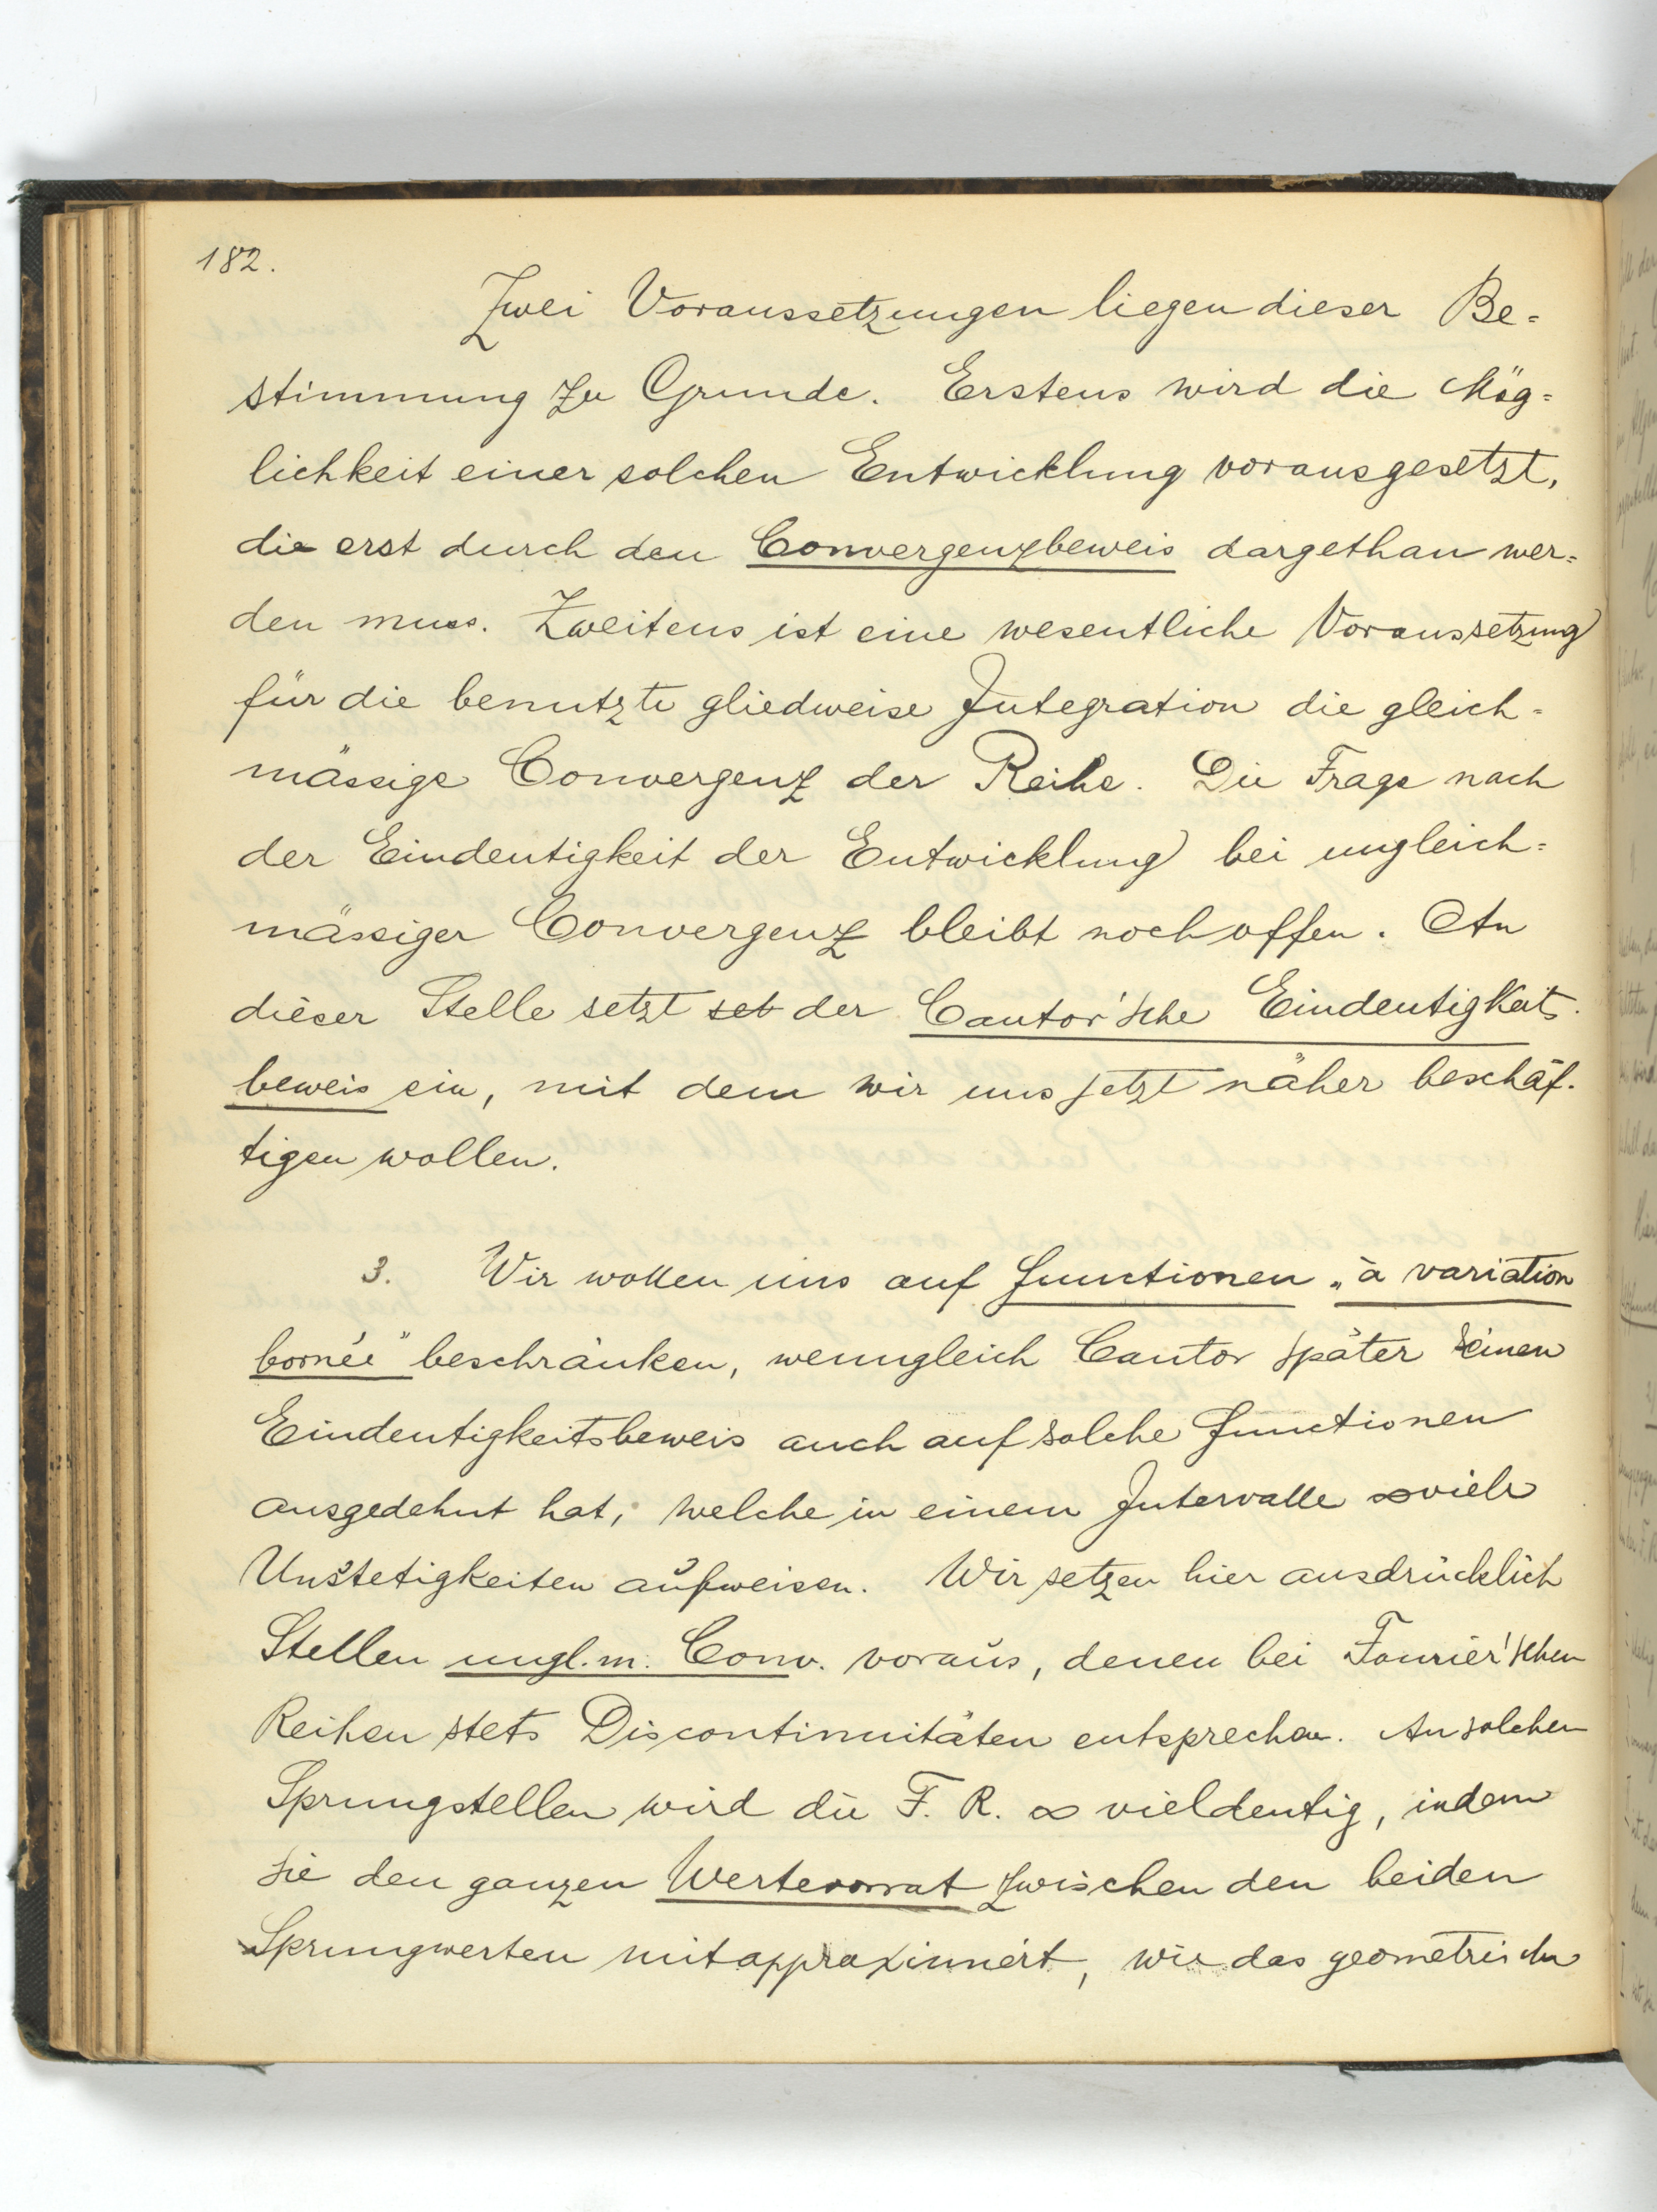 182.
Zwei Voraussetzungen liegen dieser Be=
stimmung zu Grunde. Erstens wird die Mög=
lichkeit einer solchen Entwicklung vorausgesetzt,
die erst durch den Convergenzbeweis dargethan wer=
den muss. Zweitens ist eine wesentliche Voraussetzung
für die benutzte gliedweise Integration die gleich=
mässige Convergenz der Reihe. Die Frage nach
der Eindeutigkeit der Entwicklung bei ungleich=
mässiger Convergenz bleibt noch offen. An
dieser Stelle setzt set der Cantor'sche Eindeutigkeits.
beweis ein, mit dem wir uns jetzt näher beschäf.
tigen wollen.
3. Wir wollen uns auf Functionen „à variation
bornée" beschränken, wenngleich Cantor später seinen
Eindeutigkeitsbeweis auch auf solche Functionen
ausgedehnt hat, welche in einem Intervalle ∞viele
Unstetigkeiten aufweisen. Wir setzen hier ausdrücklich
Stellen ungl. m. Conv. voraus, denen bei Fourier'schen
Reihen stets Discontinuitäten entsprechen. An solchen
Sprungstellen wird die F. R. ∞ vieldeutig, indem
sie den ganzen Wertevorrat zwischen den beiden
Sprungwerten mitapproximiert, wie das geometrische